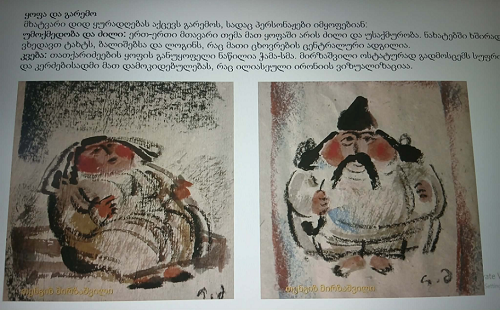 ყოფა და გარემო
მხატვარი დიდ ყურადღებას აქცევს გარემოს, სადაც პერსონაჟები იმყოფებიან:
უმოქმედობა და ძილი: ერთ-ერთი მთავარი თემა მათ ყოფაში არის ძილი და უსაქმურობა. ნახატებში ხშირად
ვხედავთ ტახტს, ბალიშებსა და ლოგინს, რაც მათი ცხოვრების ცენტრალური ადგილია.
კვება: თათქარიძეების ყოფის განუყოფელი ნაწილია ჭამა-სმა. მირზაშვილი ოსტატურად გადმოსცემს სუფრი
და კერძებისადმი მათ დამოკიდებულებას, რაც ილიასეული ირონიის ვიზუალიზაციაა.
მირზაშვილი
მირზაშვილი